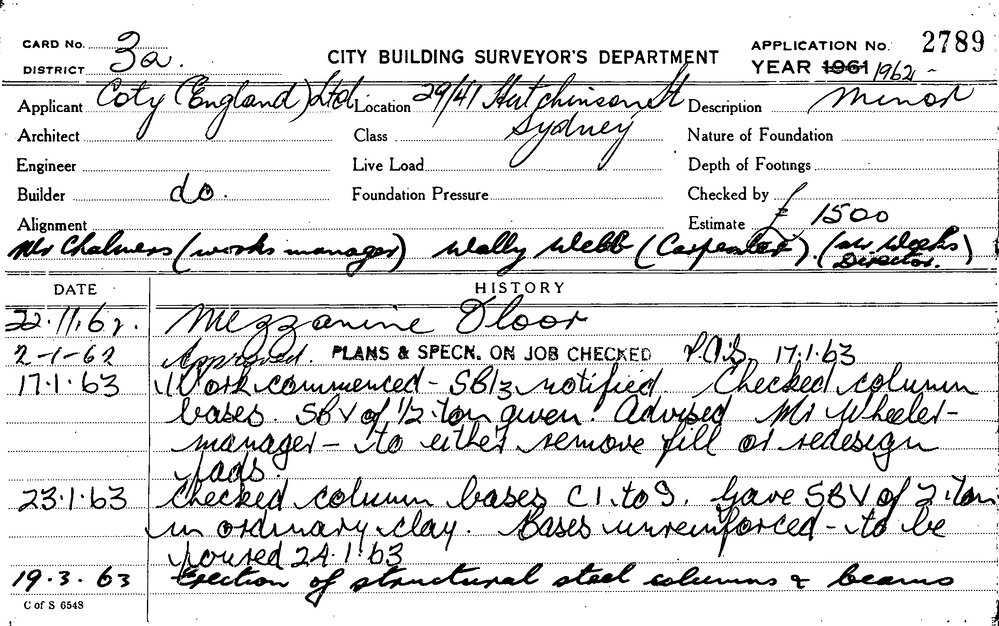 CARD No. 3a. CITY BUILDING SURVEYOR'S DEPARTMENT APPLICATION No. 2789
DISTRICT YEAR 1961 1962-
Applicant Coty (England) Ltd. Location 29/41 Hutchinson St Description Minor
Architect Class Sydney Nature of Foundation
Engineer Live Load Depth of Footings
Builder do. Foundation Pressure Checked by
Alignment Estimate £ 1500
Mr Chalmers (works manager) Wally Webb (Carpenter). (Mr Weeks Director.)
DATE HISTORY
22.11.62. Mezzanine Floor
2-1-62 Approved. PLANS & SPECN. ON JOB CHECKED 17.1.63
17.1.63 Work commenced - SB13 notified Checked column
bases. SBV of 1/2 ton given. Advised Mr Wheeler-
manager - to either remove fill or redesign
pads.
23.1.63 Checked column bases C1. to 9. Gave SBV of 2 ton
in ordinary clay. Bases unreinforced - to be
poured 24.1.63
19.3.63 Erection of structural steel columns & beams
C of S 6548